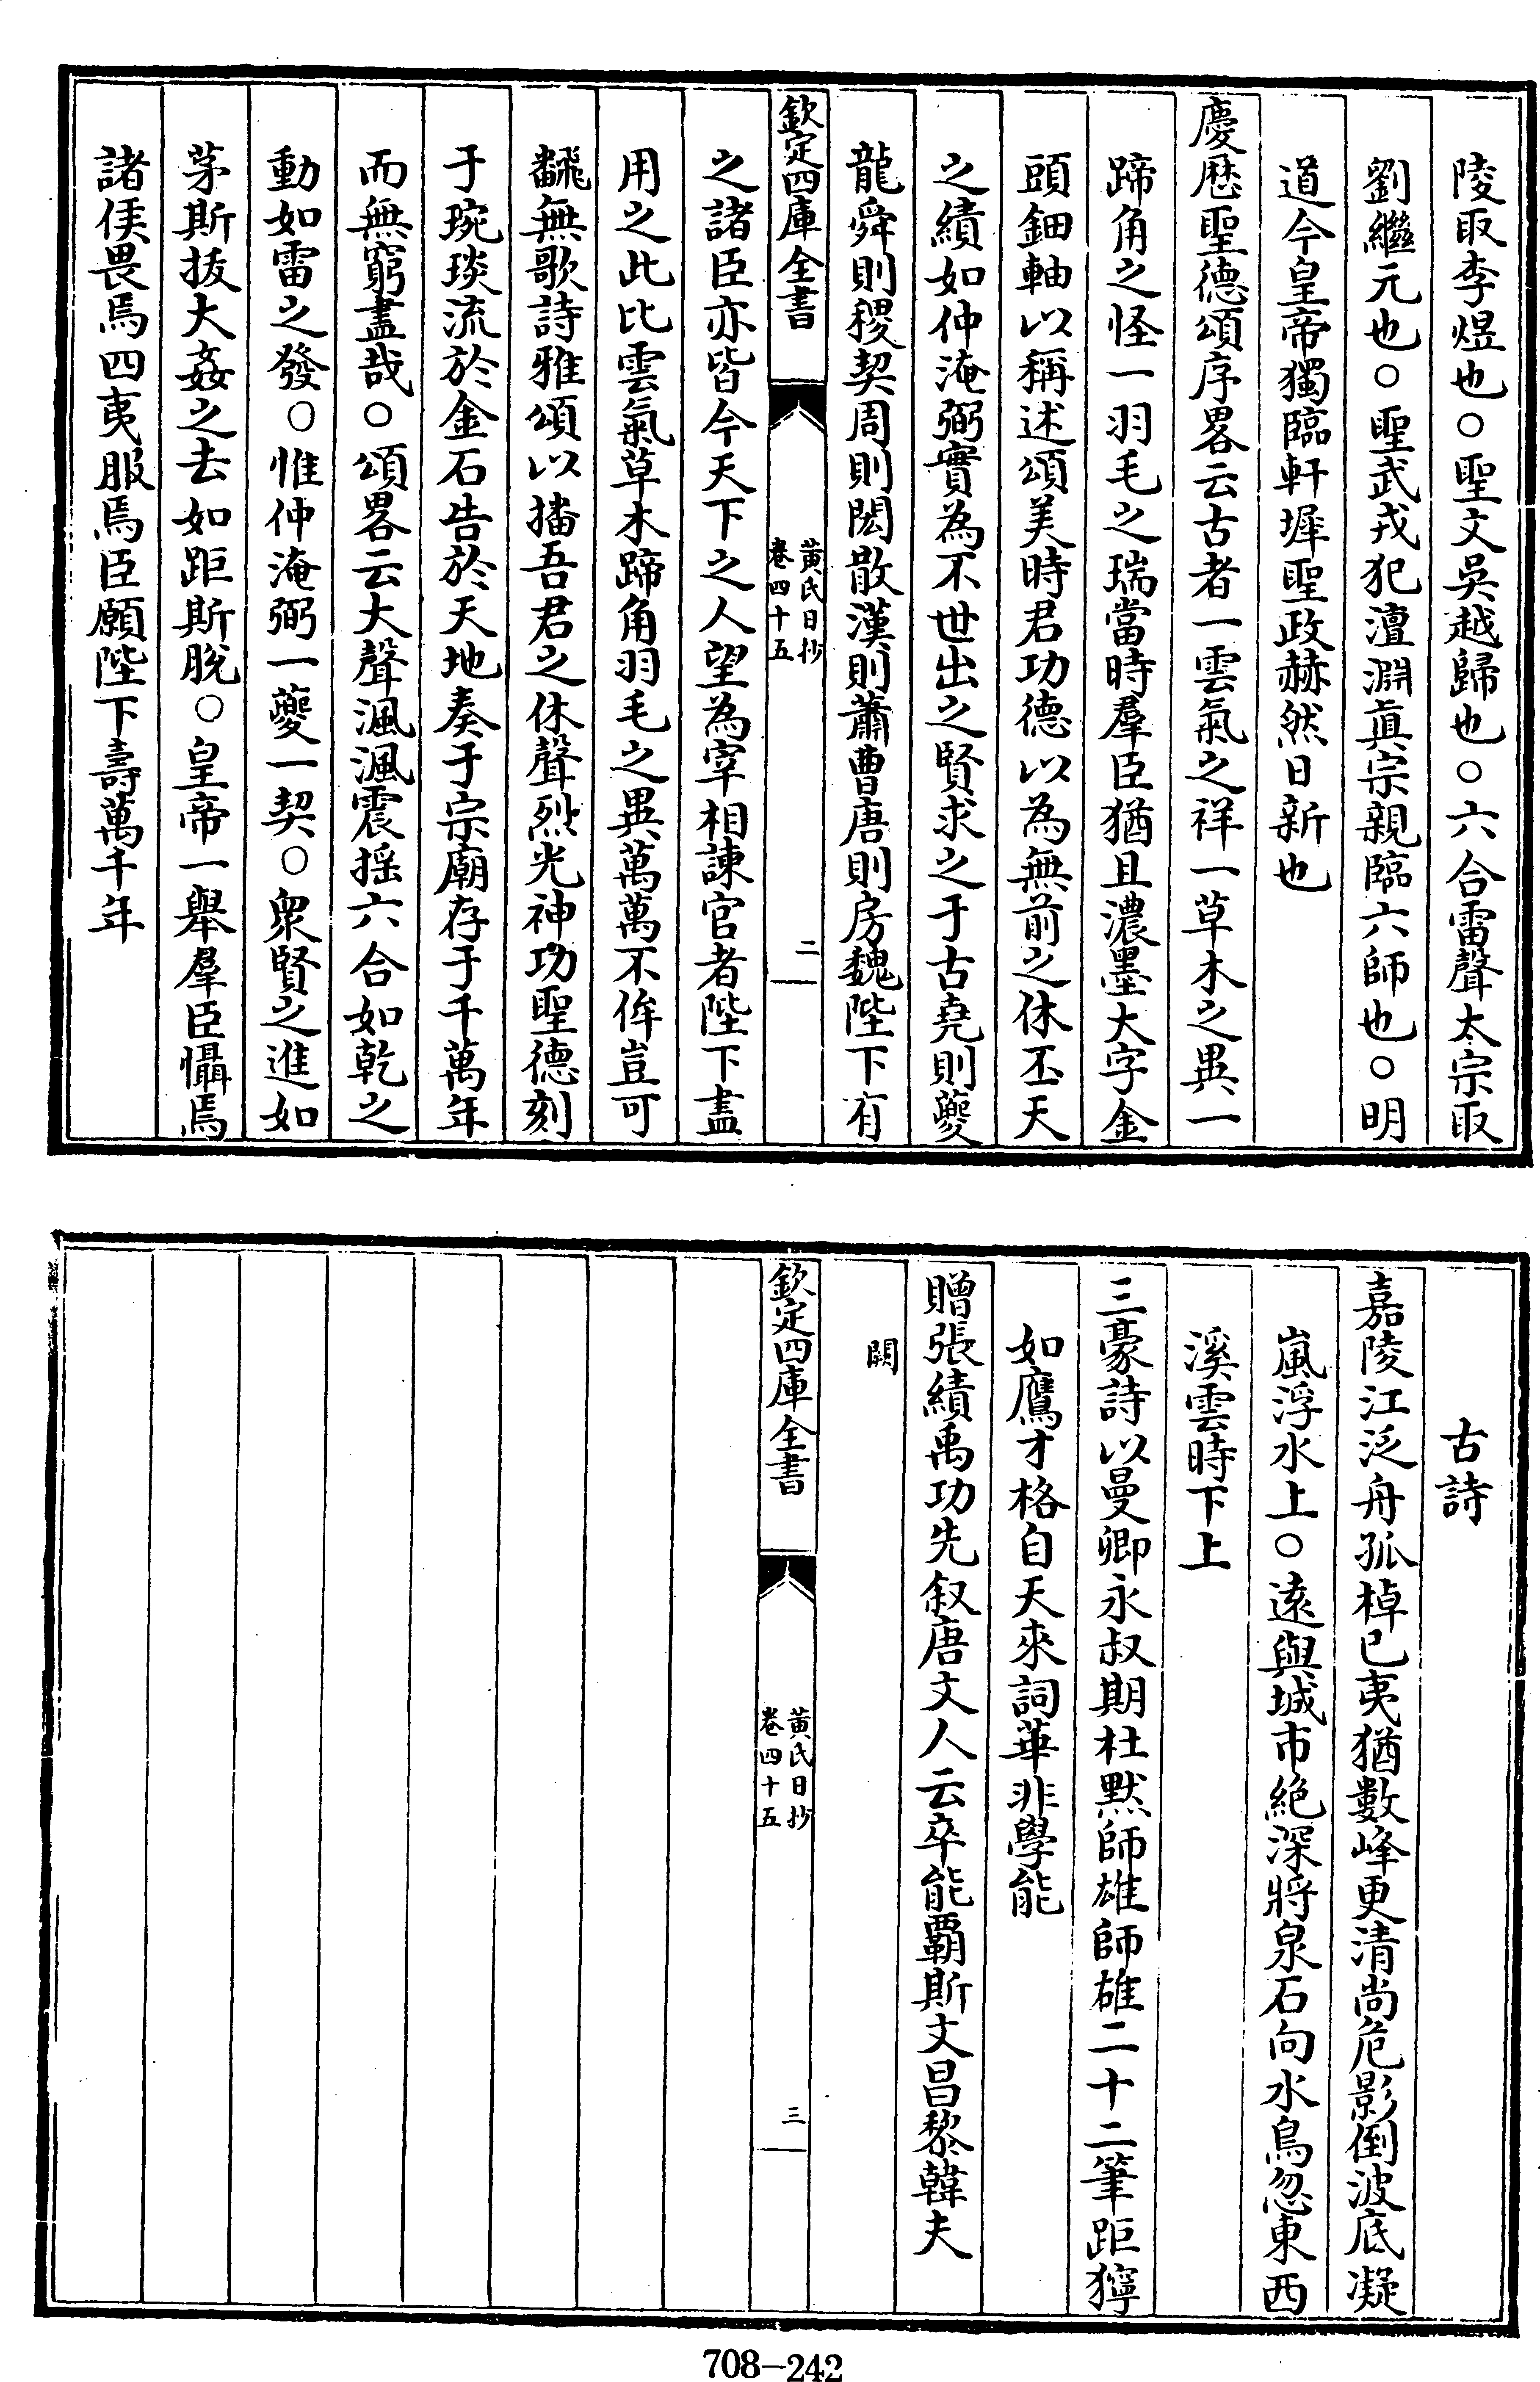 陵取李煜也○聖文吳越歸也○六合雷聲太宗取
劉繼元也○聖武戎犯澶淵真宗親臨六師也○明
道今皇帝獨臨軒墀聖政赫然日新也
慶歷聖德頌序畧云古者一雲氣之祥一草木之異一
蹄角之怪一羽毛之瑞當時羣臣猶且濃墨大字金
頭鈿軸以稱述頌美時君功德以為無前之休丕天
之績如仲淹弼實為不世出之賢求之于古堯則夔
龍舜則稷契周則閎散漢則蕭曹唐則房魏陛下有
欽定四庫全書
黃氏日抄
卷四十五
二
之諸臣亦皆今天下之人望為宰相諫官者陛下盡
用之此比雲氣草木蹄角羽毛之異萬萬不侔豈可
飜無歌詩雅頌以播吾君之休聲烈光神功聖德刻
于琬琰流於金石告於天地奏于宗廟存于千萬年
而無窮盡哉○頌畧云大聲渢渢震搖六合如乾之
動如雷之發○惟仲淹弼一夔一契○衆賢之進如
茅斯拔大姦之去如距斯脫○皇帝一舉羣臣懾焉
諸侯畏焉四夷服焉臣願陛下壽萬千年
古詩
嘉陵江泛舟孤棹已夷猶數峰更清尚危影倒波底凝
嵐浮水上○遠與城市絶深將泉石向水鳥忽東西
溪雲時下上
三豪詩以曼卿永叔期杜默師雄師雄二十二筆距獰
如鷹才格自天來詞華非學能
贈張績禹功先叙唐文人云卒能霸斯文昌黎韓夫
闕
欽定四庫全書
黃氏日抄
卷四十五
三
708-242